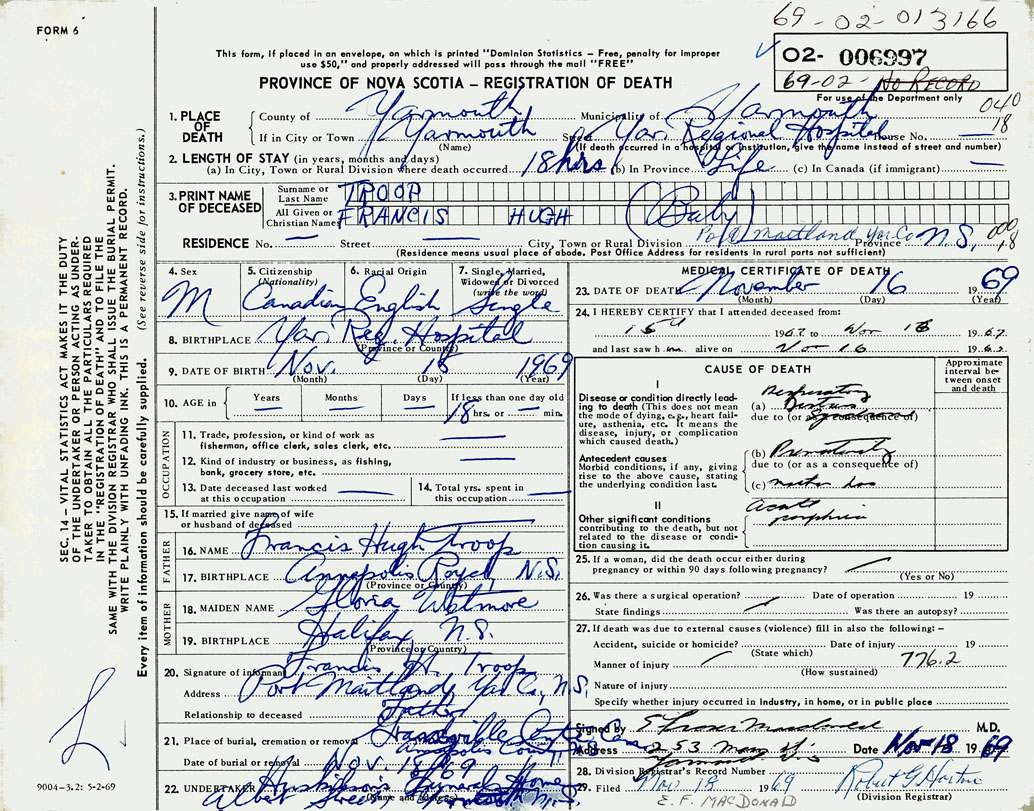 FORM 6
69-02-013166
02- 006997
69-02- No RECORD
For use of the Department only
040
18
This form, if placed in an envelope, on which is printed "Dominion Statistics – Free, penalty for improper
use $50," and properly addressed will pass through the mail "FREE"
PROVINCE OF NOVA SCOTIA – REGISTRATION OF DEATH
1. PLACE OF DEATH
County of Yarmouth Municipality of Yarmouth
If in City or Town Yarmouth Street Yar. Regional Hospital House No. —
(Name) (If death occurred in a hospital or institution, give the name instead of street and number)
2. LENGTH OF STAY (in years, months and days)
(a) In City, Town or Rural Division where death occurred 18 hrs (b) In Province Life (c) In Canada (if immigrant) —
3. PRINT NAME OF DECEASED
Surname or Last Name TROOP
All Given or Christian Names FRANCIS HUGH (Baby)
RESIDENCE No. — Street — City, Town or Rural Division Port Maitland Yar. Co Province N.S.
(Residence means usual place of abode. Post Office Address for residents in rural parts not sufficient)
4. Sex M
5. Citizenship (Nationality) Canadian
6. Racial Origin English
7. Single, Married, Widowed or Divorced (write the word) Single
8. BIRTHPLACE Yar. Reg. Hospital
(Province or Country)
9. DATE OF BIRTH Nov. 18 1969
(Month) (Day) (Year)
10. AGE in Years Months Days If less than one day old
18 hrs. or — min.
OCCUPATION
11. Trade, profession, or kind of work as fisherman, office clerk, sales clerk, etc. —
12. Kind of industry or business, as fishing, bank, grocery store, etc. —
13. Date deceased last worked at this occupation —
14. Total yrs. spent in this occupation —
15. If married give name of wife or husband of deceased
FATHER
16. NAME Francis Hugh Troop
17. BIRTHPLACE Annapolis Royal N.S.
(Province or Country)
MOTHER
18. MAIDEN NAME Gloria Wetmore
19. BIRTHPLACE Halifax, N.S.
(Province or Country)
20. Signature of informant Francis H. Troop
Address Port Maitland, Yar Co, N.S.
Relationship to deceased Father
21. Place of burial, cremation or removal Granville Centre
Annapolis County
Date of burial or removal Nov. 18 1969
22. UNDERTAKER Funeral Home
(Name and Address)
Albert Street N.S.
MEDICAL CERTIFICATE OF DEATH
23. DATE OF DEATH November 16 1969
(Month) (Day) (Year)
24. I HEREBY CERTIFY that I attended deceased from:
19 to Nov 19
and last saw h alive on Nov 16 19
CAUSE OF DEATH
Approximate interval between onset and death
I
Disease or condition directly leading to death (This does not mean the mode of dying, e.g., heart failure, asthenia, etc. It means the disease, injury, or complication which caused death.)
(a) Respiratory Distress
due to (or as a consequence of)
Antecedent causes
Morbid conditions, if any, giving rise to the above cause, stating the underlying condition last.
(b) Prematurity
due to (or as a consequence of)
(c) mother has
acute porphyria
II
Other significant conditions
Contributing to the death, but not related to the disease or condition causing it.
25. If a woman, did the death occur either during pregnancy or within 90 days following pregnancy?
(Yes or No)
26. Was there a surgical operation? Date of operation 19
State findings Was there an autopsy?
27. If death was due to external causes (violence) fill in also the following: –
Accident, suicide or homicide? Date of injury 19
(State which)
Manner of injury 776.2
(How sustained)
Nature of injury
Specify whether injury occurred in industry, in home, or in public place
Signed by M.D.
Address 253 Main St. Date Nov 18 1969
Yarmouth N.S.
28. Division Registrar's Record Number
29. Filed Nov. 18 1969 Robert G Horton
E. F. MACDONALD (Division Registrar)
SEC. 14 – VITAL STATISTICS ACT MAKES IT THE DUTY
OF THE UNDERTAKER OR PERSON ACTING AS UNDER-
TAKER TO OBTAIN ALL THE PARTICULARS REQUIRED
IN THE "REGISTRATION OF DEATH" AND TO FILE THE
SAME WITH THE DIVISION REGISTRAR WHO SHALL ISSUE THE BURIAL PERMIT.
WRITE PLAINLY WITH UNFADING INK. THIS IS A PERMANENT RECORD.
Every item of information should be carefully supplied. (See reverse side for instructions.)
9004–3.2: 5-2-69